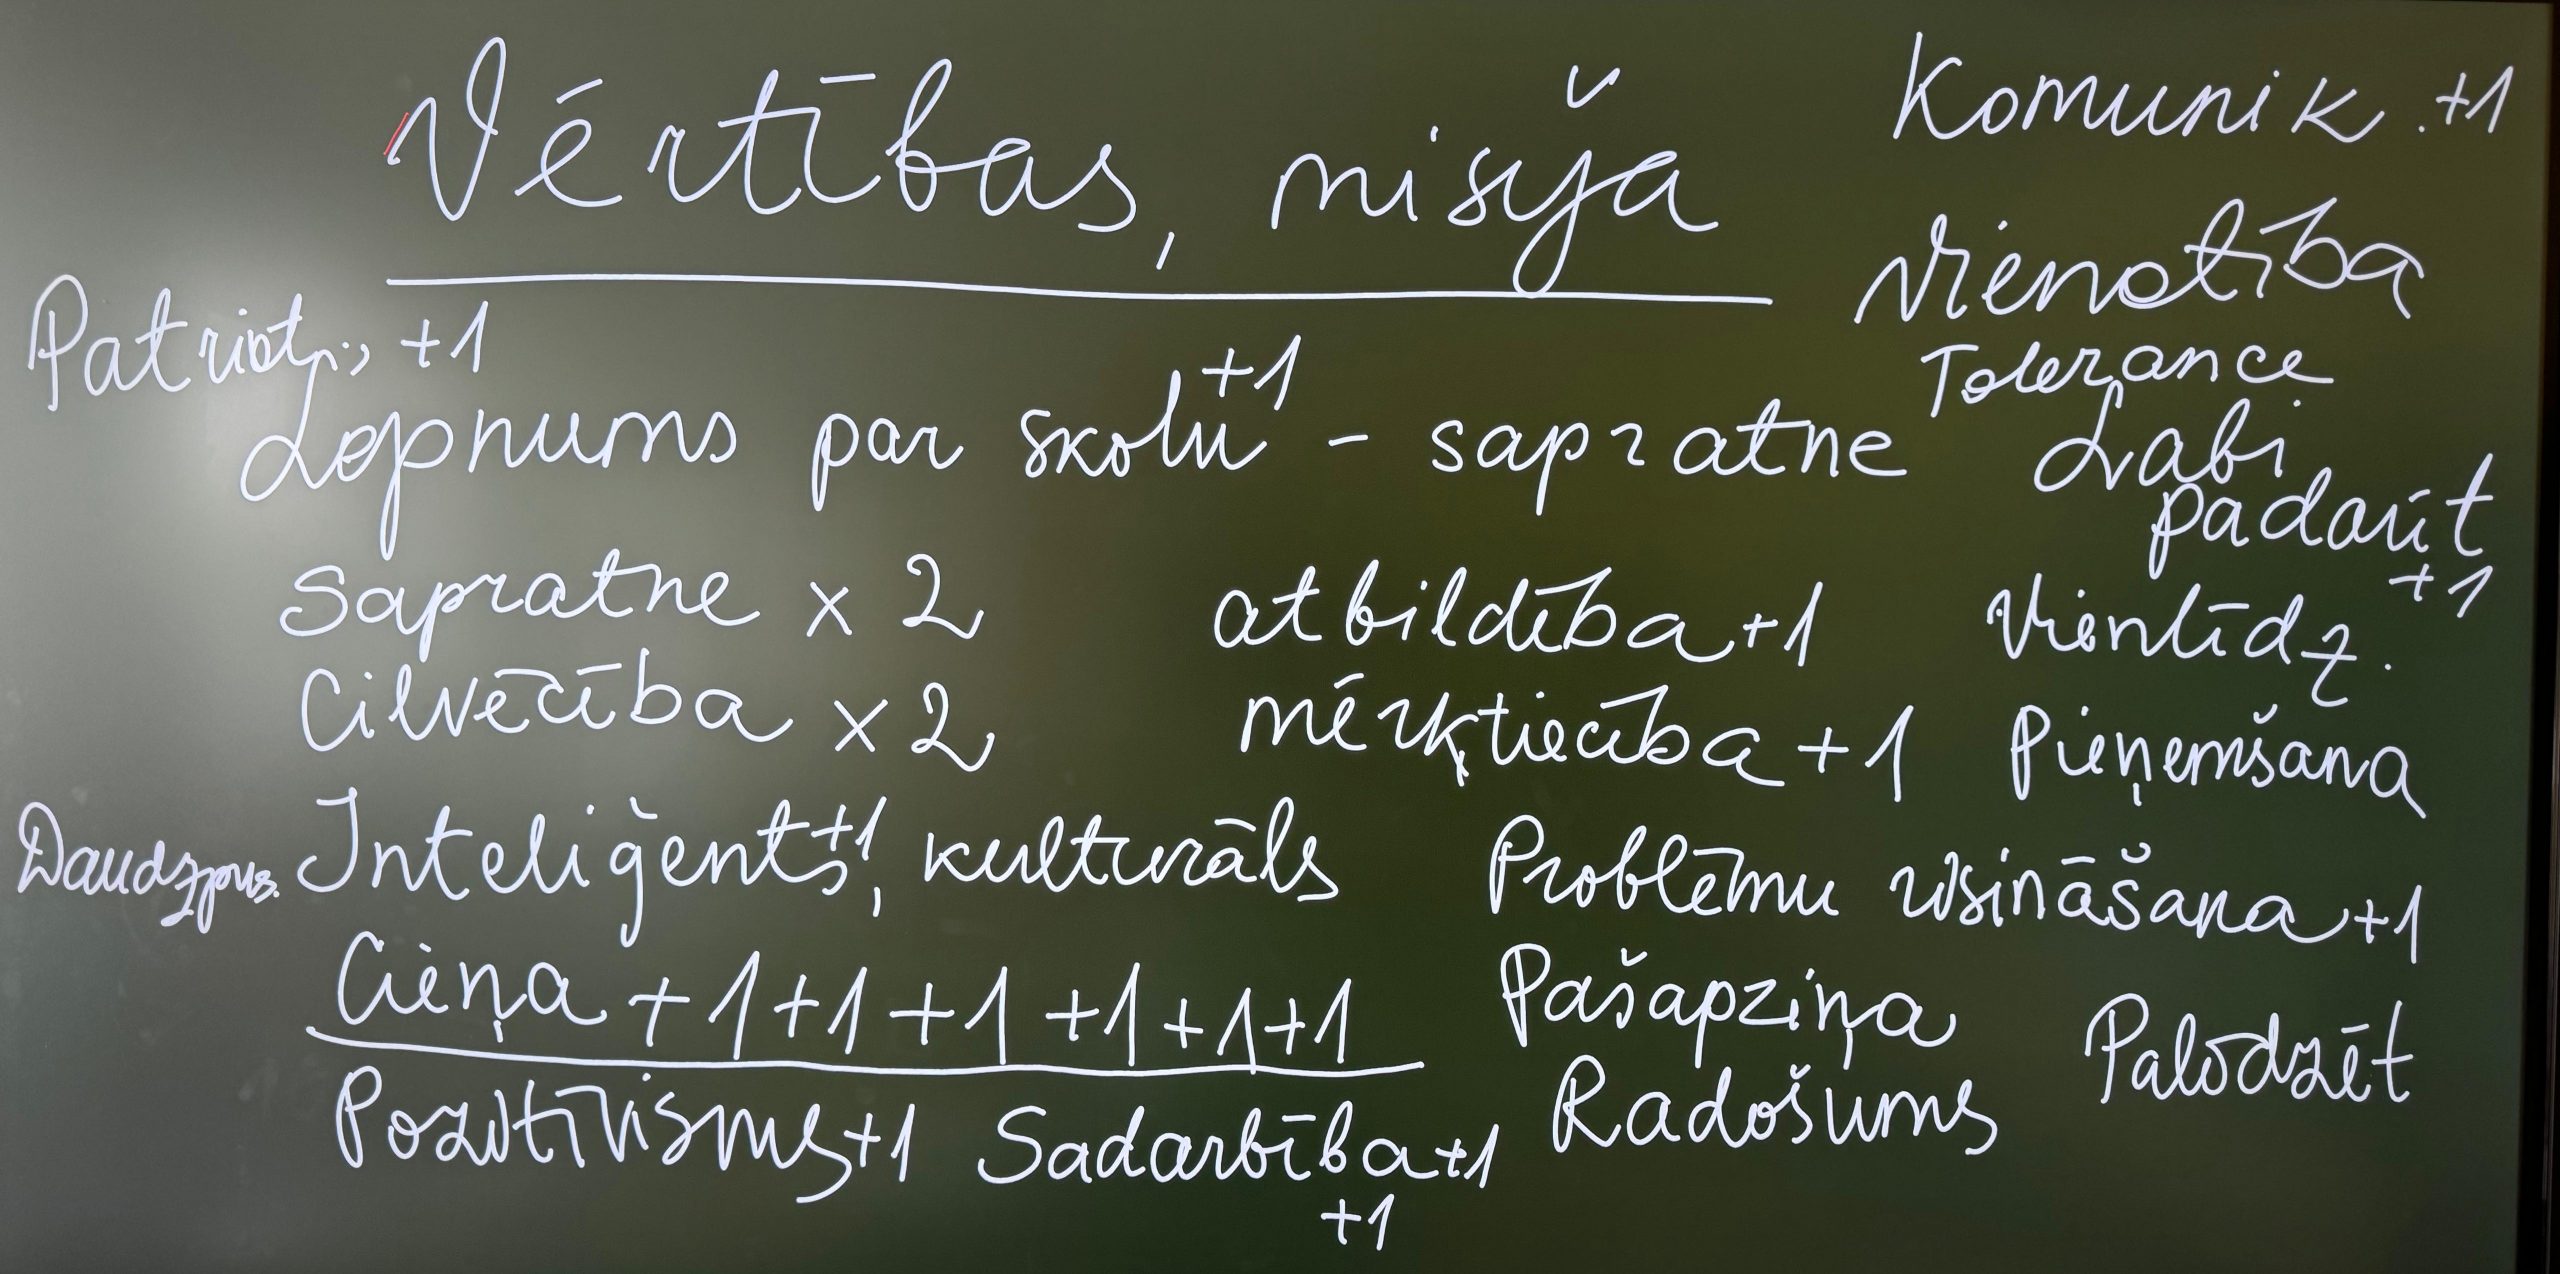 Vērtības, misija
Komunik. +1
Vienotība
Patriot. +1
Tolerance
Lepnums par skolu +1 - sapratne
Labi
padarīt
Sapratne x 2
atbildība +1
Vienlīdz. +1
Cilvēcība x 2
mērķtiecība +1
Pieņemšana
Daudzpus.
Inteliģents +1, kulturāls
Problēmu risināšana +1
Cieņa +1 +1 +1 +1 +1 +1
Pašapziņa
Palīdzēt
Pozitīvisms +1
Sadarbība +1
+1
Radošums